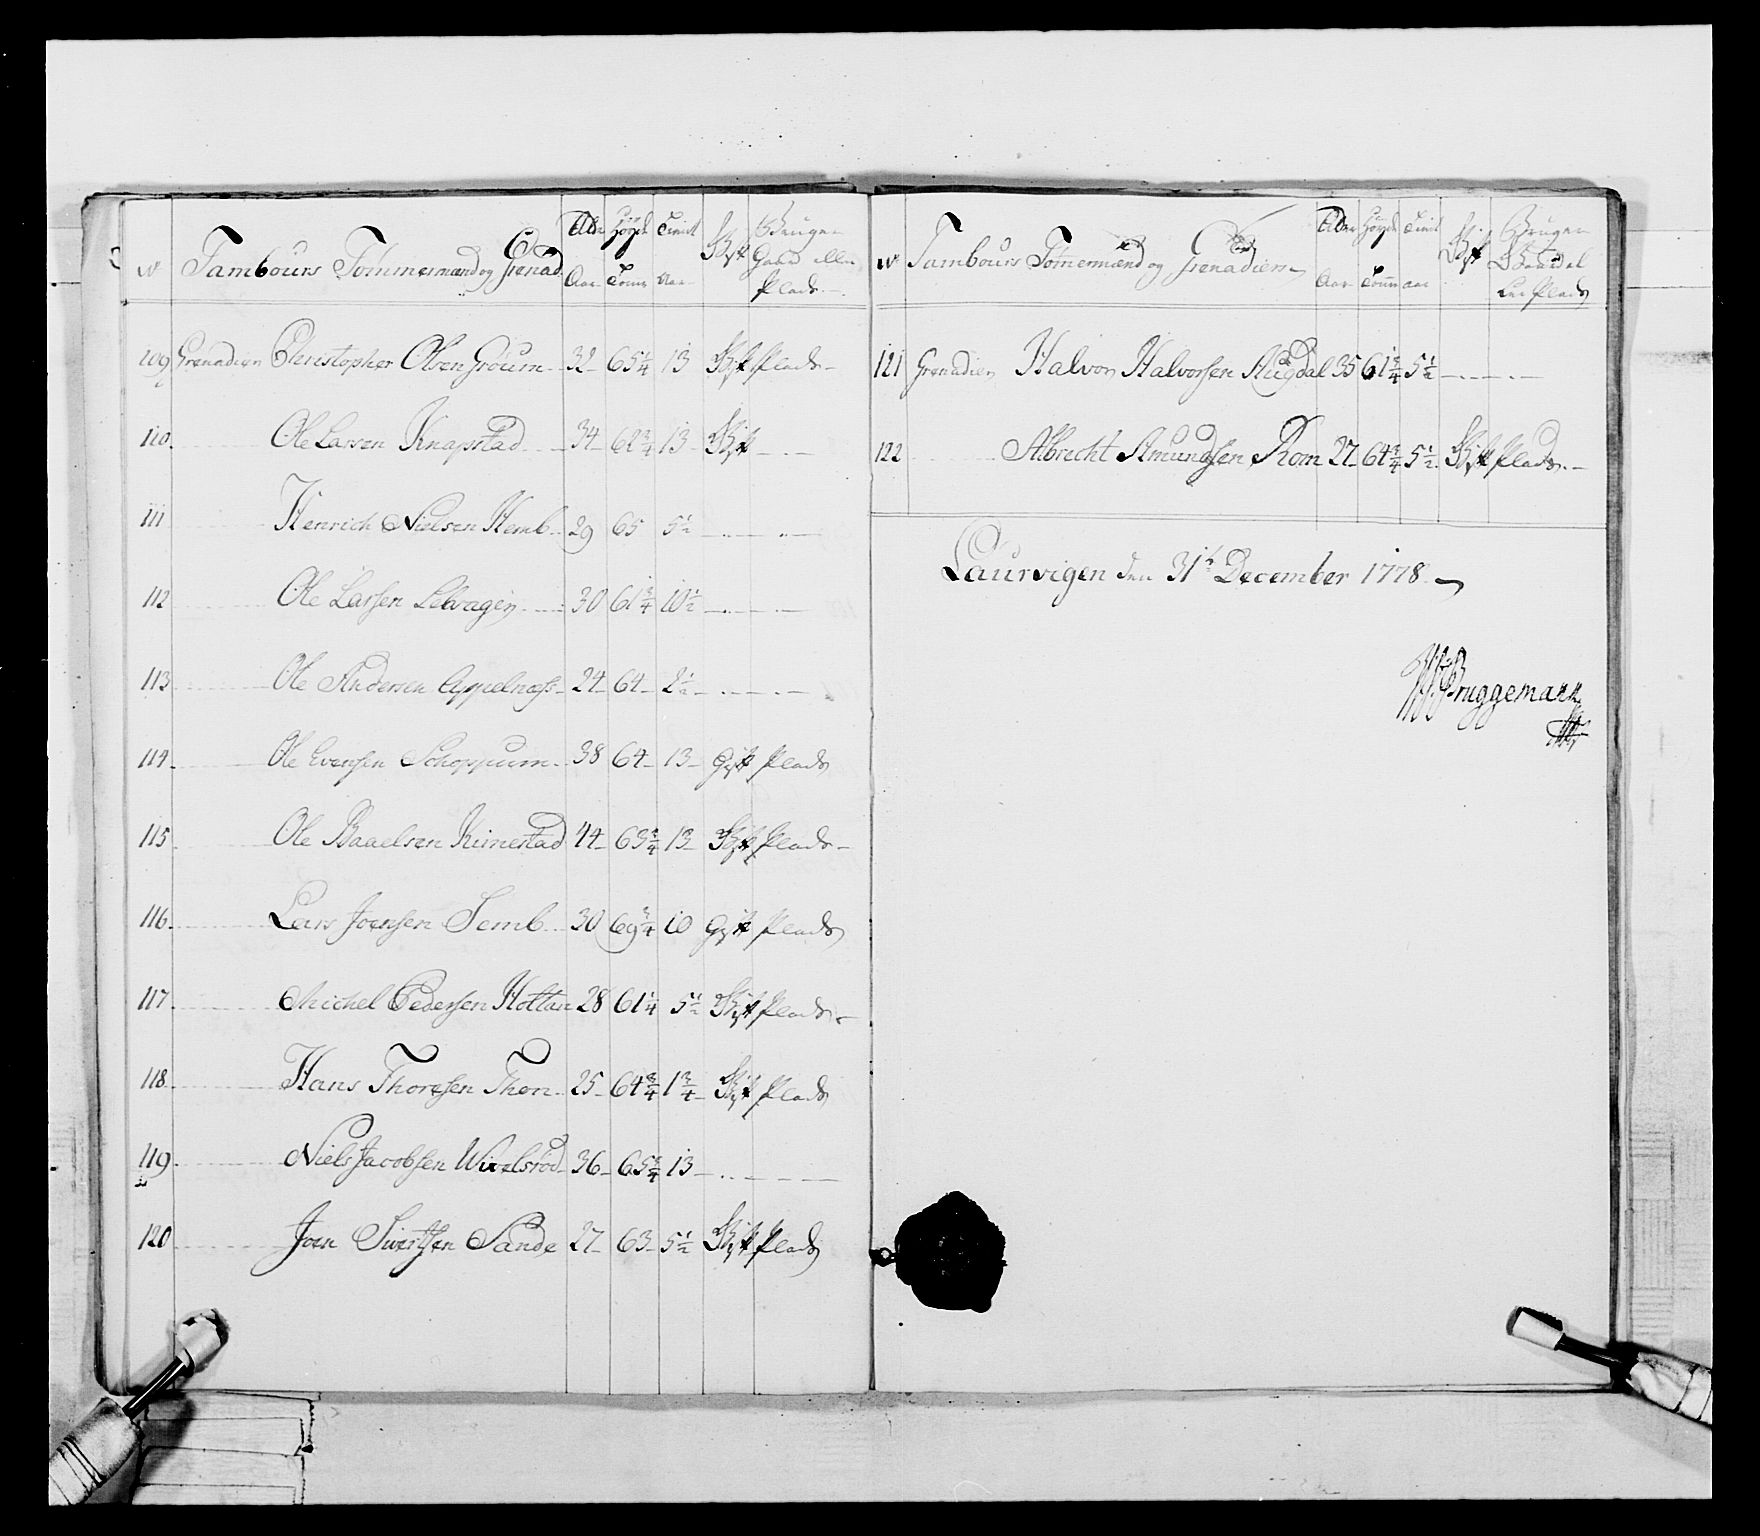 No Tambours Tömmermænd og Grenad. Alder Aar Höyde Tomr Tient Aar Gift Bruger Gaard eller Plads
109 Grenadeer Christopher Olsen Gröum 32 65 1/4 13 Gift Plads
110. Ole Larsen Knapstad 34 62 3/4 13 Gift
111 Henrich Nielsen Hemb 29 65 5 1/2
112 Ole Larsen 30 61 3/4 10 1/2
113 Ole Andersen Appelnæss 24 64 2 1/2
114. Ole Evensen Schoppum 38 64 13 Gift Plads
115 Ole Paaelsen Kimestad 44 63 3/4 13 Gift Plads
116. Lars Joensen Semb 30 69 3/4 10 Gift Plads
117. Michel Pedersen Holtan 28 61 1/4 5 1/2 Gift Plads
118. Hans Thoresen Thon 25 64 3/4 1 3/4 Gift Plads
119. Niels Jacobsen Wivelsröd 36 65 3/4 13
120 Joen Sivertsen Sande 27 63 5 1/2 Gift Plads
No Tambours Tömermænd og Grenadeers Alder Aar Höyde Tomr Tient aar Gift Bruger Gaard eller Plads
121 Grenadeer Halvor Halvorsen Augdal 35 61 3/4 5 1/2
122 Albrecht Amundsen Rom 27 64 3/4 5 1/2 Gift Plads
Laurvigen den 31t December 1778
Bruggemann